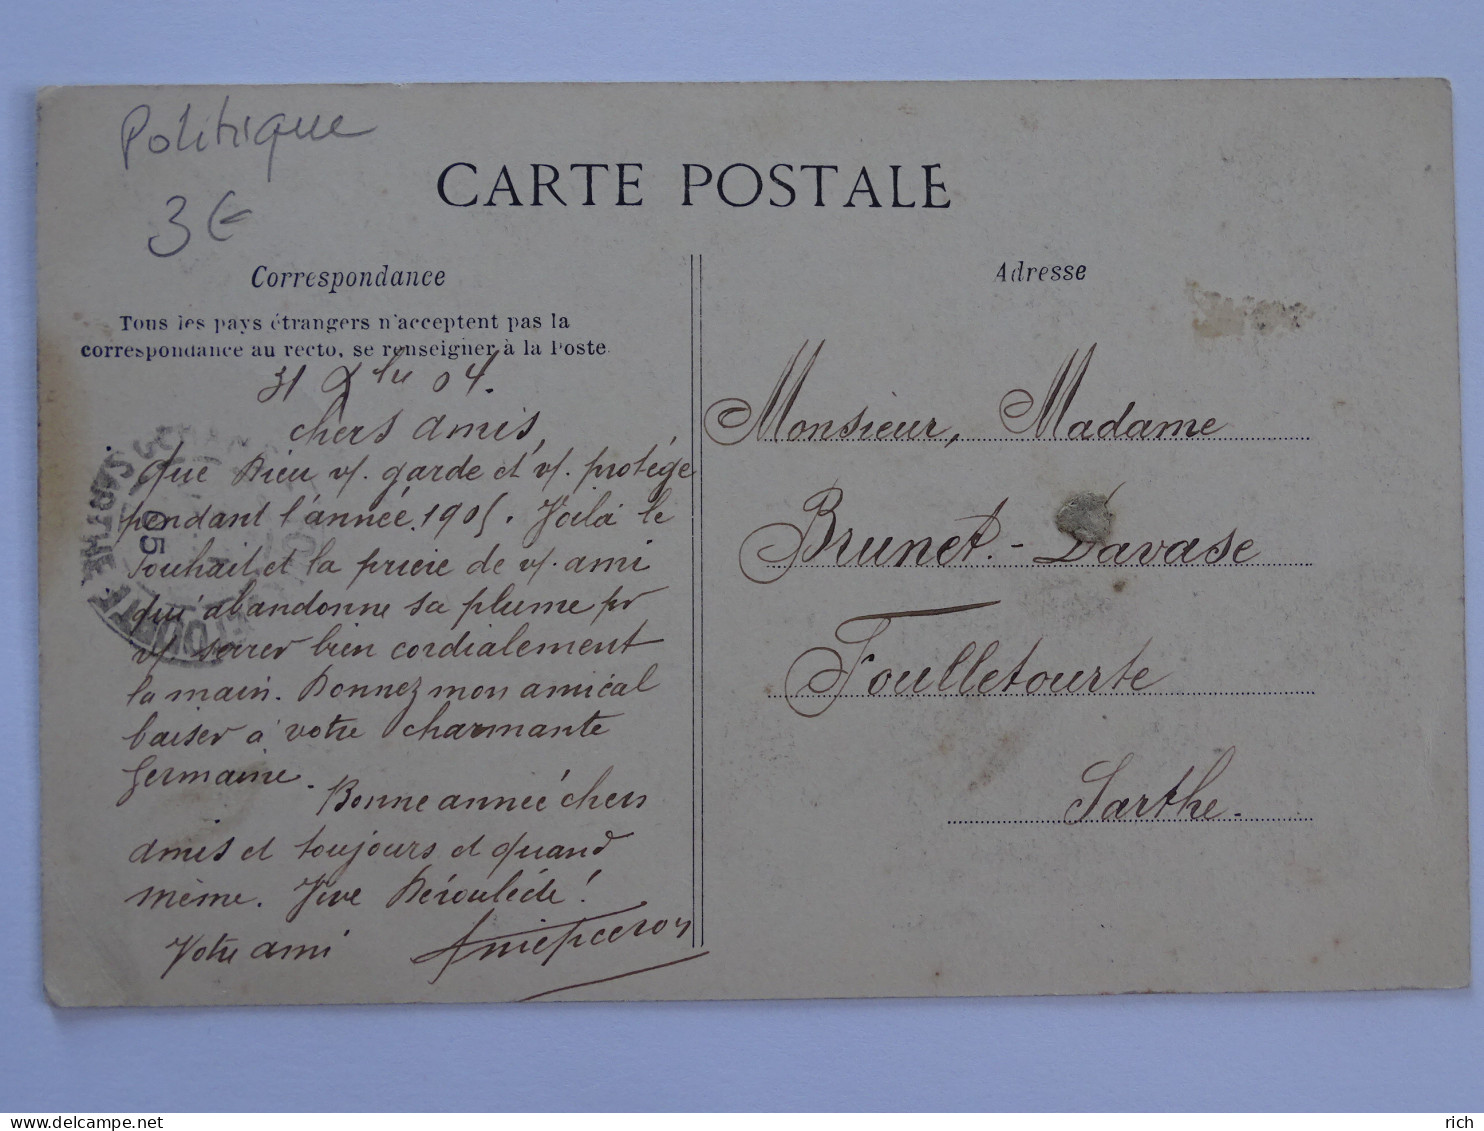 Politique
3€
CARTE POSTALE
Correspondance
Tous les pays étrangers n'acceptent pas la
correspondance au recto, se renseigner à la Poste
31 Xbre 04.
chers amis,
que Dieu v/. garde et v/. protége
pendant l'année 1905. Voilà le
souhait et la prière de v/. ami
qui abandonne sa plume pr
v/ serrer bien cordialement
la main. Donnez mon amical
baiser à votre charmante
Germaine.
Bonne année chers
amis et toujours et quand
même. Vive Déroulède!
Votre ami
Adresse
Monsieur, Madame
Brunet.- Lavase
Foulletourte
Sarthe.
SARTHE
05
delcampe.net
rich